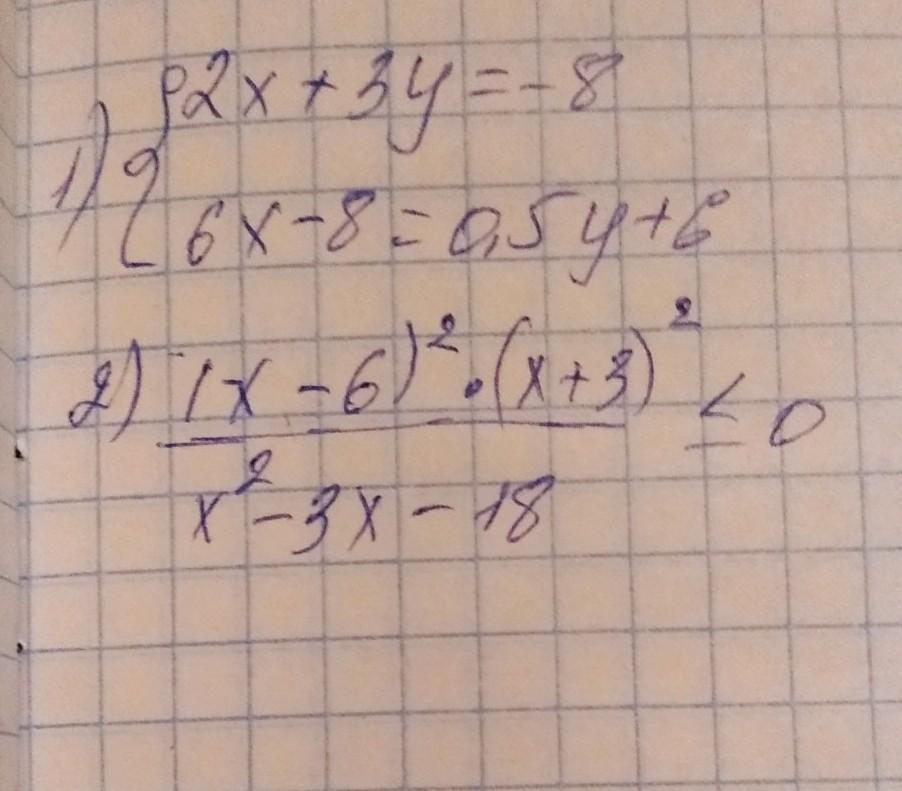 1) { 2x + 3y = -8
6x - 8 = 0,5y + 6
2) (x - 6)² · (x + 3)² ≤ 0
x² - 3x - 18